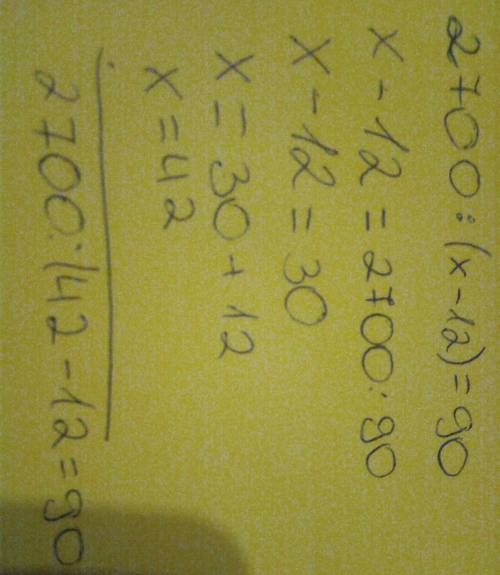 2700:(x-12)=90
x-12=2700:90
x-12=30
x=30+12
x=42
2700:(42-12=90